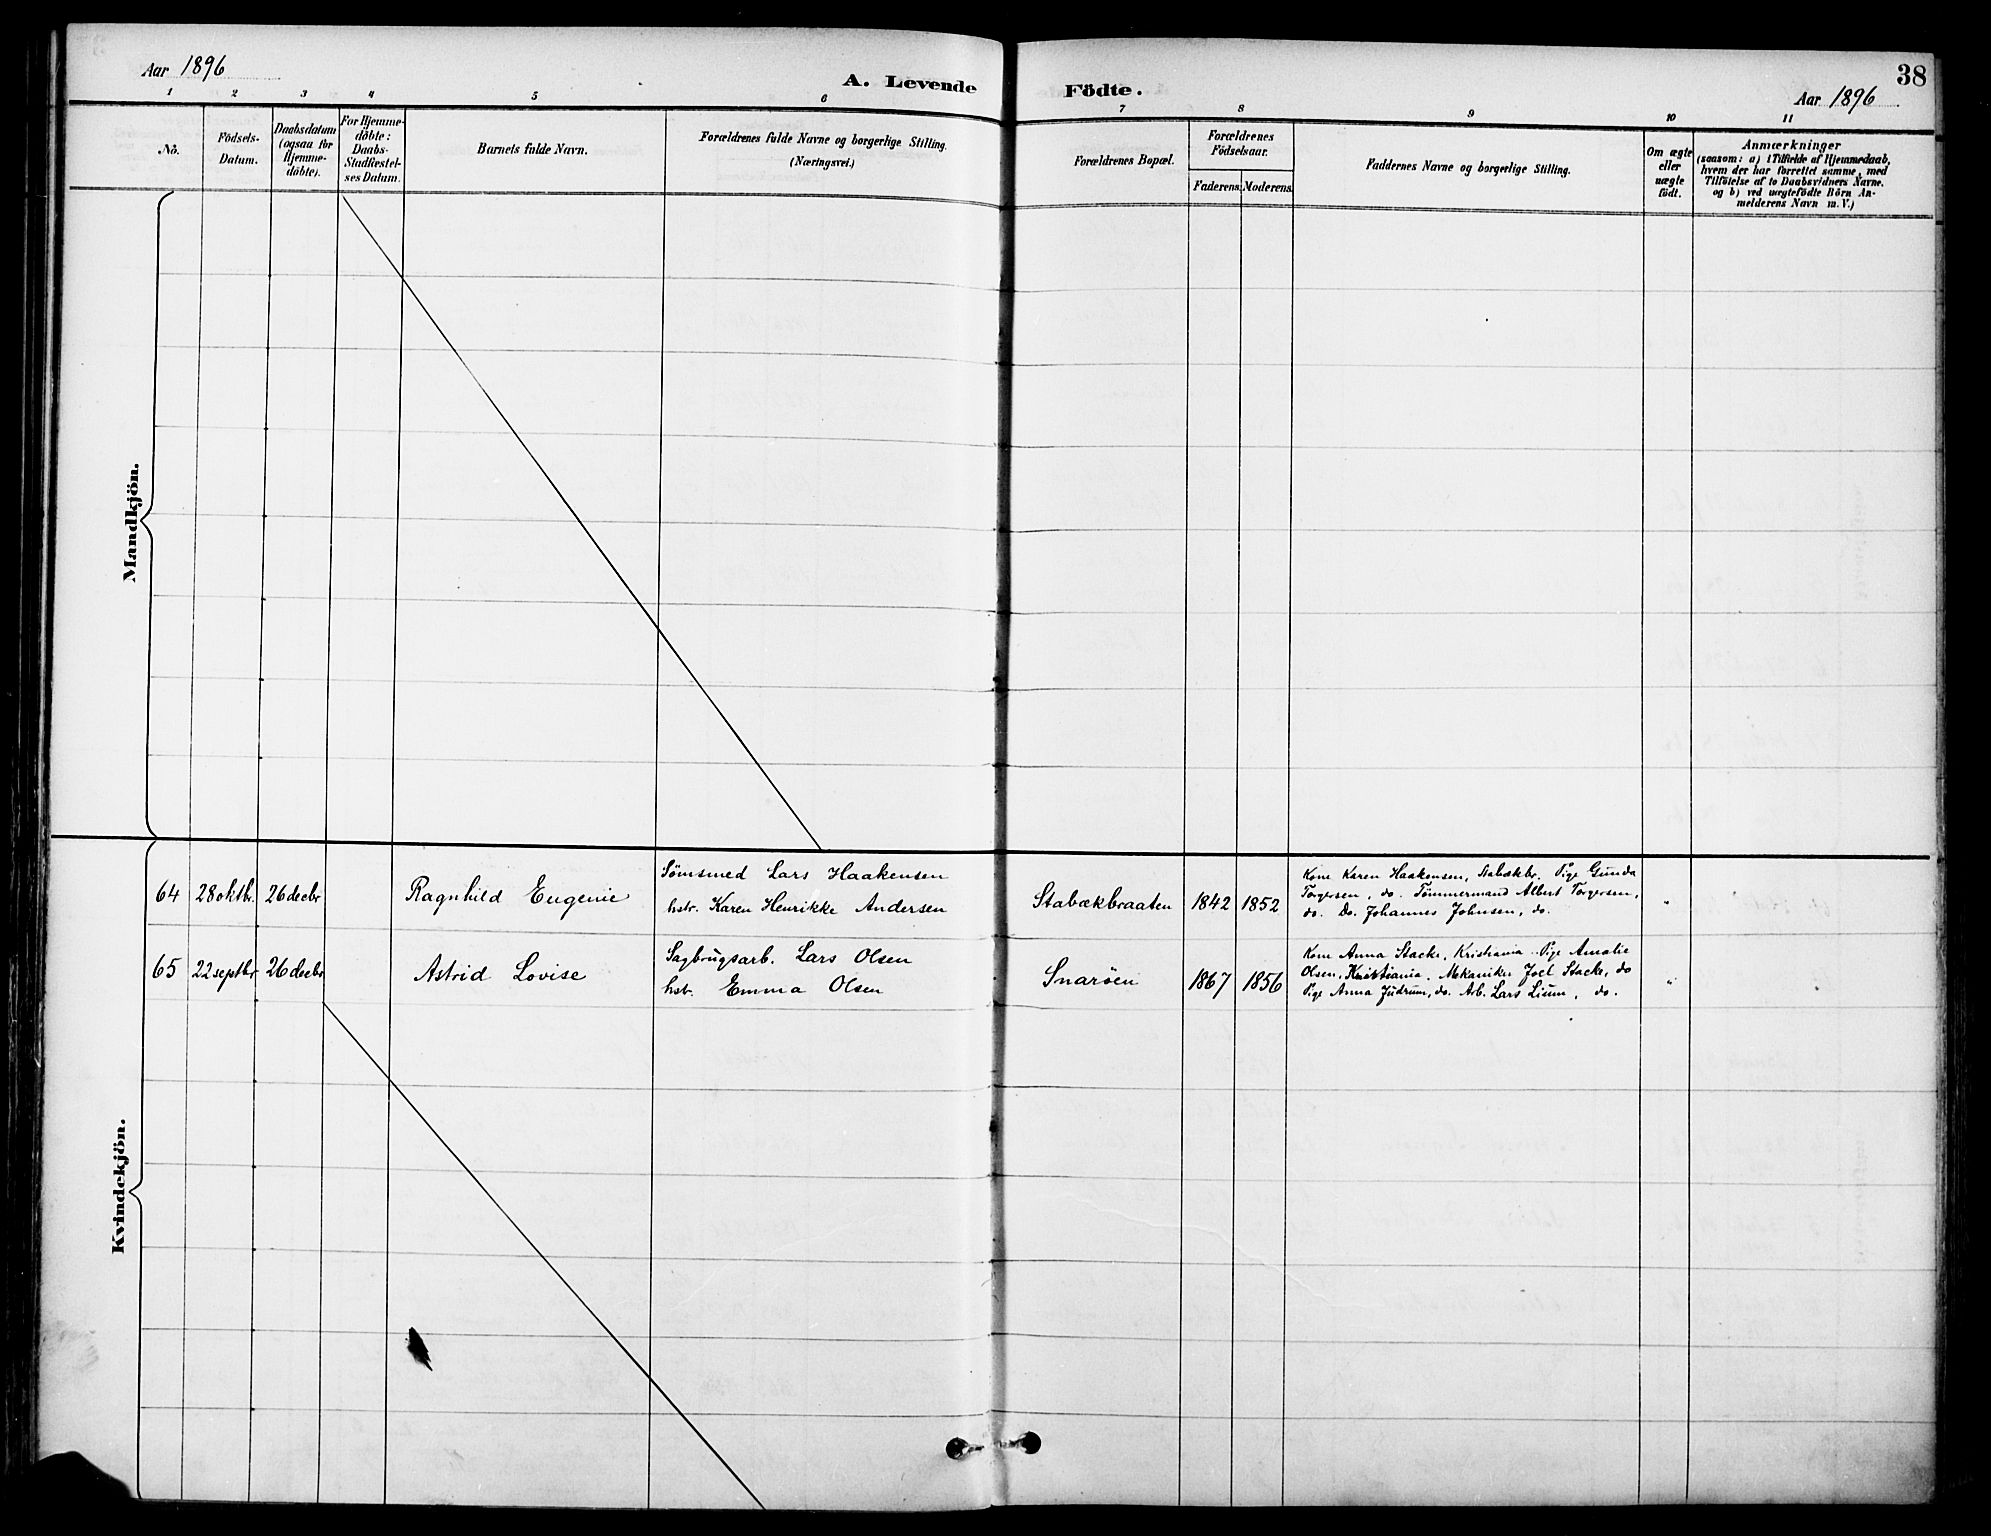 Aar 1896
A. Levende Födte.
38
Aar 1896
1 2 3 4 5 6 7 8 9 10 11
No.
Födsels-
Datum.
Daabsdatum
(ogsaa for
Hjemme-
döbte).
For Hjemme-
döbte:
Daabs-
Stadfæstel-
ses Datum.
Barnets fulde Navn.
Forældrenes fulde Navne og borgerlige Stilling.
(Næringsvei.)
Forældrenes Bopæl.
Forældrenes
Födselsaar.
Faderens. Moderens.
Faddernes Navne og borgerlige Stilling.
Om ægte
eller
uægte
født.
Anmærkninger
(saasom: a) i Tilfælde af Hjemmedaab,
hvem der har forrettet samme, med
Tilföielse af to Daabsvidners Navne.
og b) ved uægtefödte Börn An-
melderens Navn m. V.)
Mandkjön.
Kvindekjön.
64 28 oktbr. 26 decbr Ragnhild Eugenie
Sömsmed Lars Haakensen
hstr. Karen Henrikke Andersen
Stabækbraaten 1842 1852
Kone Karen Haakensen, Stabækbr. Pige Gunda
Torgersen, do. Tömmermand Albert Torgersen,
do. Do. Johannes Johnsen, do.
"
65 22 septbr 26 decbr Astrid Lovise
Sagbrugsarb. Lars Olsen
hstr. Emma Olsen
Snaröen 1867 1856
Kone Anna Stacke, Kristiania. Pige Amalie
Olsen, Kristiania. Mekaniker Joel Stacke, do
Pige Anna Judrum, do. Arb. Lars Lium, do.
"